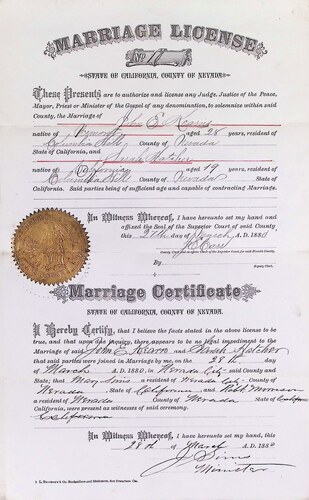 MARRIAGE LICENSE
No 17
STATE OF CALIFORNIA, COUNTY OF NEVADA.
These Presents are to authorize and license any Judge, Justice of the Peace,
Mayor, Priest or Minister of the Gospel of any denomination, to solemnize within said
County, the Marriage of John E Hearn
native of Vermont aged 28 years, resident of
Columbia Hill County of Nevada
State of California, and Sarah Hatcher
native of California aged 19 years, resident of
Columbia Hill County of Nevada State of
California. Said parties being of sufficient age and capable of contracting Marriage.
In Witness Whereof, I have hereunto set my hand and
affixed the Seal of the Superior Court of said County
this 27th day of March A.D. 1880
By
Deputy Clerk.
Marriage Certificate
STATE OF CALIFORNIA, COUNTY OF NEVADA.
I Hereby Certify, that I believe the facts stated in the above license to be
true, and that upon due inquiry, there appears to be no legal impediment to the
Marriage of said John E Hearn and Sarah Hatcher
that said parties were joined in Marriage by me, on the 28th day of
March A.D. 1880 in Nevada City said County and
State; that Mary Sims a resident of Nevada City County of
Nevada State of California and
a resident of Nevada County of Nevada State of California
California, were present as witnesses of said ceremony.
In Witness Whereof, I have hereunto set my hand, this
28th day of March A.D. 1880
J Sims
Minister